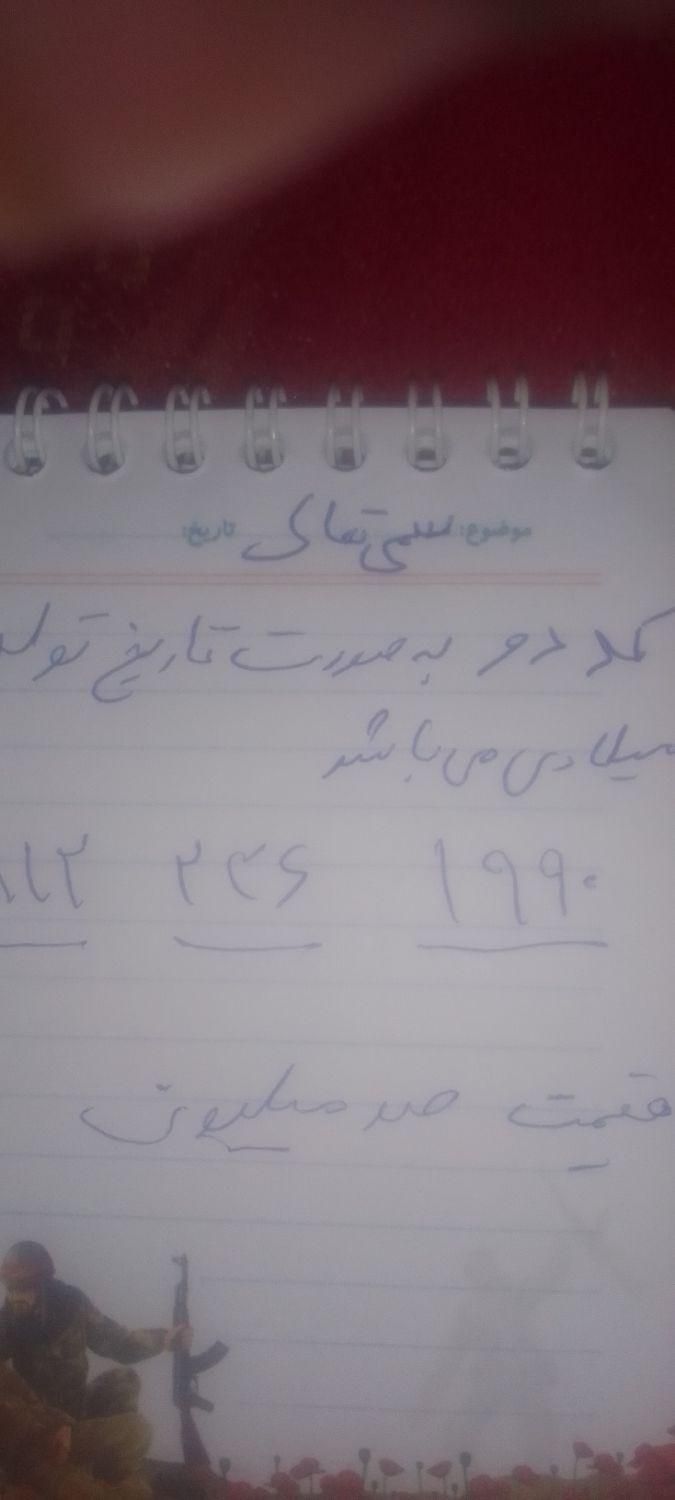 موضوع: بسمه تعالی تاریخ:
کد دو به صورت تاریخ تولد
میلادی می باشد
۱۹۹۰ ۲۳۶
قیمت صد میلیون